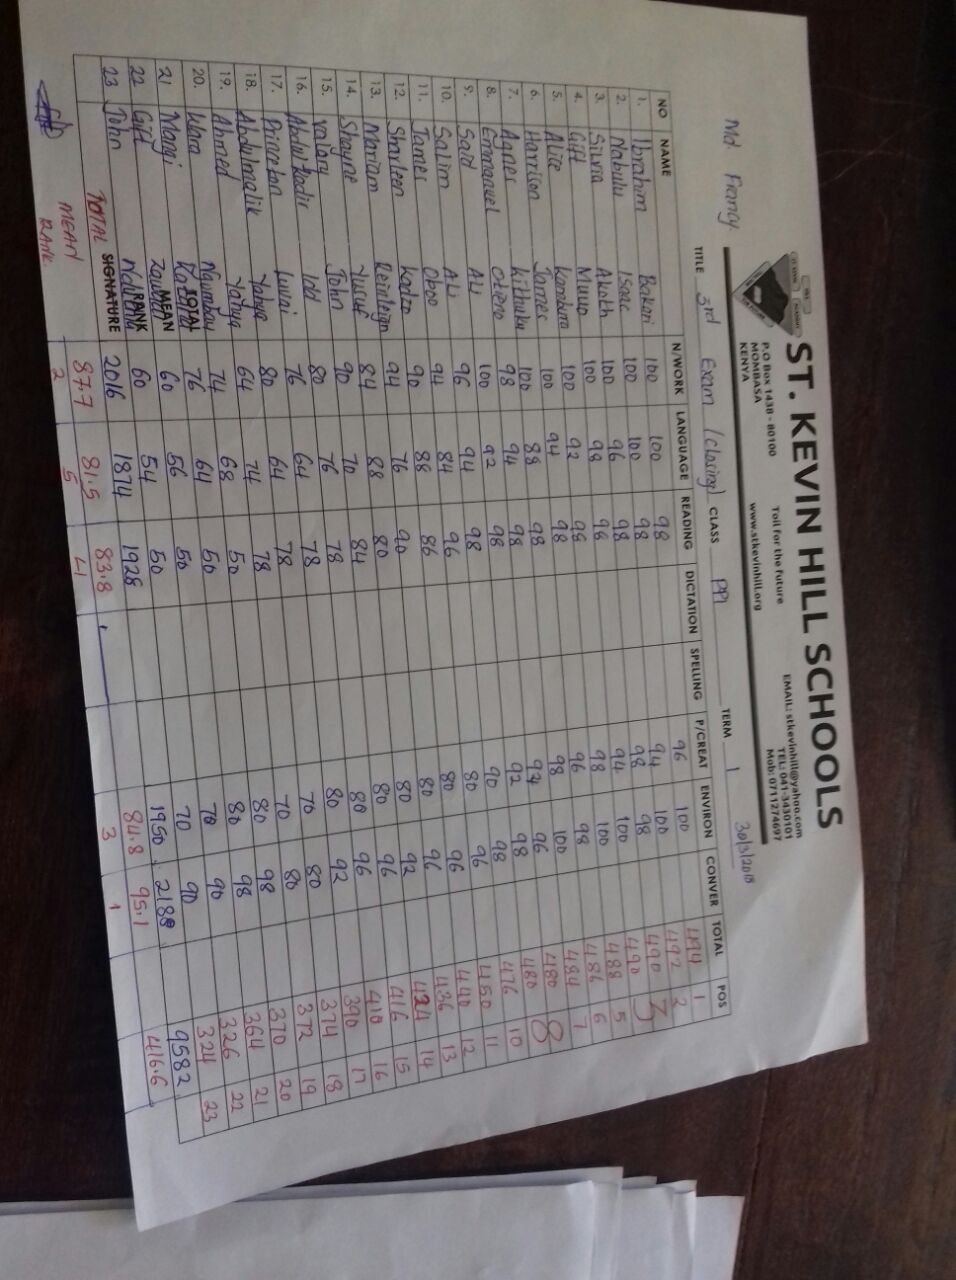 Md Francy
ST. KEVIN HILL SCHOOLS
P.O Box 1438 - 80100
MOMBASA
KENYA
Toil For the Future
www.stkevinhill.org
EMAIL: stkevinhill@yahoo.com
TEL: 041-3430101
Mob: 0711274697
TITLE 3rd Exam (closing) CLASS PP1 TERM 1 30/3/2018
NO NAME N/WORK LANGUAGE READING DICTATION SPELLING P/CREAT ENVIRON CONVER TOTAL POS
1. Ibrahim Bakari 100 100 98 96 100 494 1
2. Nabulu Isaac 100 100 98 94 100 492 2
3. Silvia Akoth 100 96 98 98 98 490 3
4. Gift Mluvo 100 98 98 94 100 490
5. Alice Kambura 100 92 98 98 100 488 5
6. Harrison James 100 94 98 96 98 486 6
7. Agnes Kithuku 100 88 98 98 100 484 7
8. Emmanuel Otieno 98 94 98 94 96 480 8
9. Said Ali 100 92 98 92 98 480
10. Salim Ali 96 94 98 90 98 476 10
11. James Oboo 94 84 96 80 96 450 11
12. Sharleen Katzo 90 88 86 80 96 440 12
13. Mariam Reinleign 94 76 90 80 96 436 13
14. Shayne Yusuf 84 88 80 80 92 424 14
15. Valary John 90 70 84 80 96 416 15
16. Abdulkadir Idd 80 76 78 80 96 410 16
17. Princeton Luvai 76 64 78 80 92 390 17
18. Abdulmalik Yahya 80 64 78 70 80 374 18
19. Ahmed Yahya 64 74 78 70 80 372 19
20. Waha Ngumbau 74 68 50 80 98 370 20
21 Mangi TOTAL 76 64 50 80 98 364 21
22 Gift MEAN RANK 60 56 50 70 90 326 22
23 John SIGNATURE 60 54 50 70 90 324 23
TOTAL 2016 1874 1928 1950 2188 9582
MEAN 87.7 81.5 83.8 84.8 95.1 416.6
RANK. 2 5 4 3 1